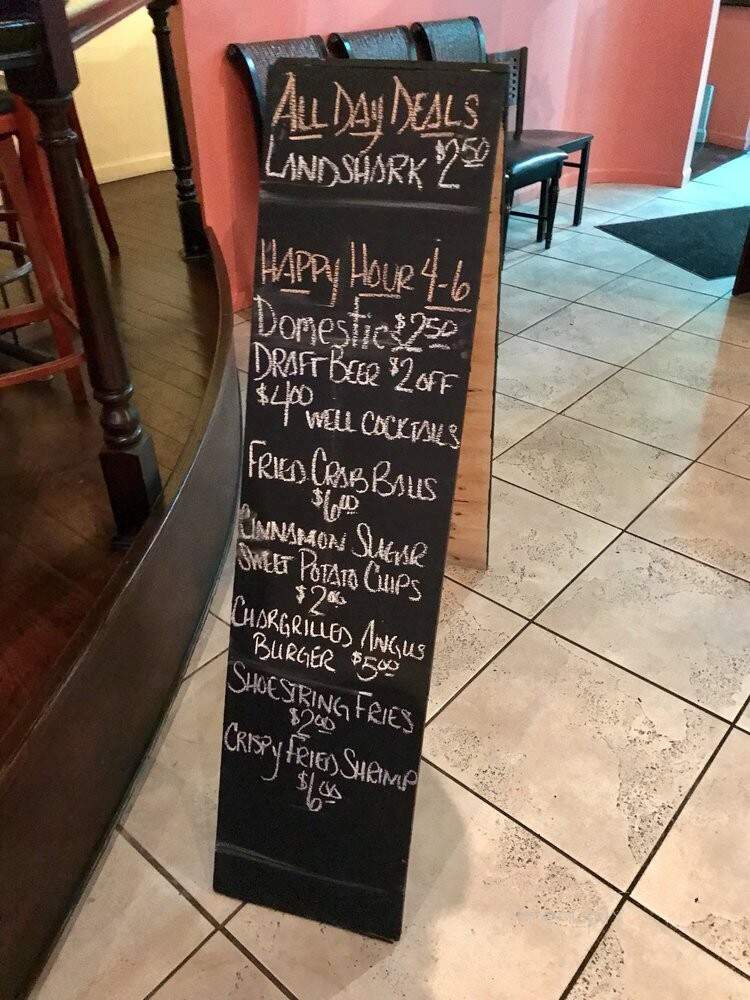 ALL DAY DEALS
LANDSHARK $2.50
HAPPY HOUR 4-6
DOMESTICS $2.50
DRAFT BEER $2 OFF
$4.00 WELL COCKTAILS
FRIED CRAB BALLS
$6.00
CINNAMON SUGAR
SWEET POTATO CHIPS
$2.00
CHARGRILLED ANGUS
BURGER $5.00
SHOESTRING FRIES
$2.00
CRISPY FRIED SHRIMP
$6.00